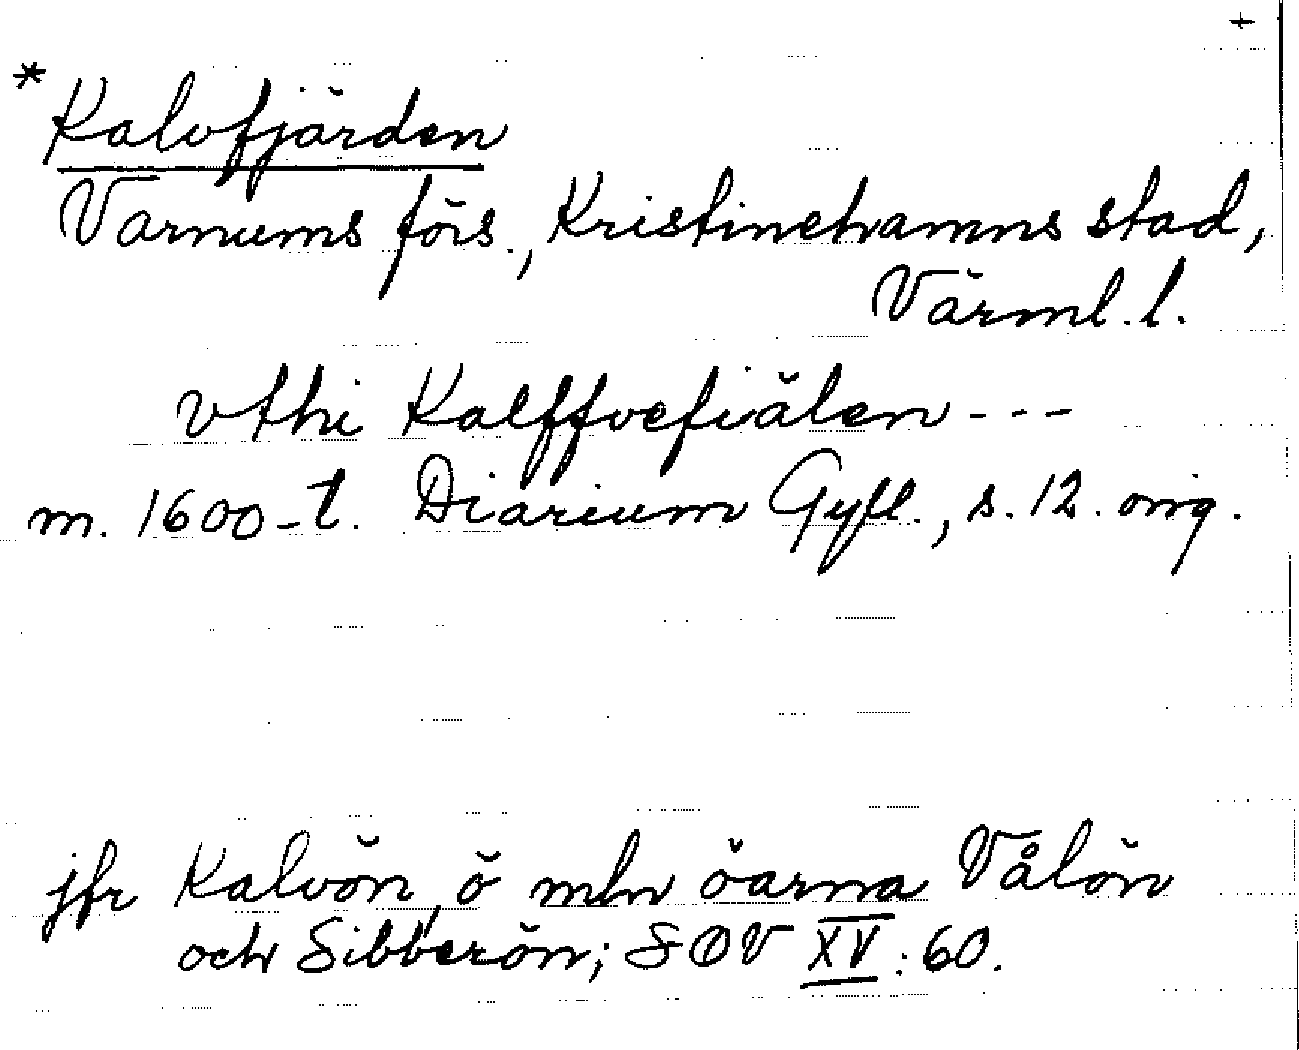 +
*Kalvfjärden
Varnums förs., Kristinehamns stad,
Värml. l.
vthi Kalffvefiälen ---
m. 1600-t. Diarium Gyll., s. 12. orig.
jfr Kalvön, ö mln öarna Vålön
och Sibberön; SOV XV: 60.